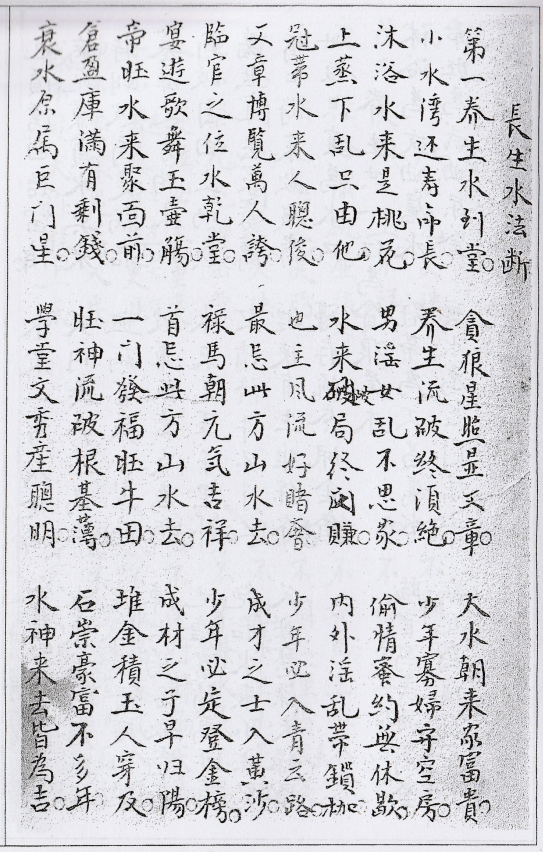 長生水法断
第一养生水到堂○貪狼星照显文章○大水朝来家富貴○
小水湾还寿命長○养生流破终須絶○少年寡婦守空房○
沐浴水来是桃花○男淫女乱不思家○偷情蜜約無休歇○
上蒸下乱只由他○水来破局终賺○内外淫乱帶鎖枷○
冠帶水来人聰俊○也主风流好賭奢○少年必入青云路○
文章博覽萬人誇○最忌此方山水去○成才之士入黃沙○
臨官之位水乾堂○禄馬朝元气吉祥○少年必定登金榜○
宴遊歌舞玉壺觴○首忌此方山水去○成材之子早归陽○
帝旺水来聚面前○一门發福旺牛田○堆金積玉人穿及○
倉盈庫滿有剩錢○旺神流破根基薄○石崇豪富不多年○
衰水原属巨门星○學堂文秀産聰明○水神来去皆為吉○